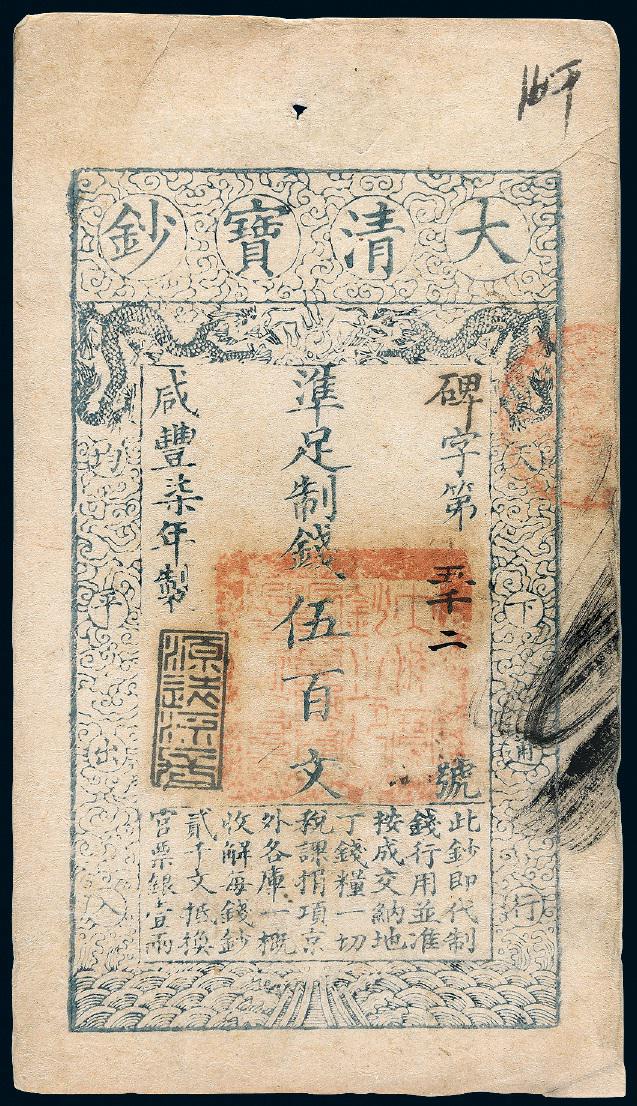 大清寶鈔
天下通行
均平出入
碑字第五千二號
準足制錢伍百文
咸豐柒年製
源遠流長
此鈔即代制
錢行用並准
按成交納地
丁錢糧一切
稅課捐項京
外各庫一概
收解每錢鈔
貳千文抵換
官票銀壹兩